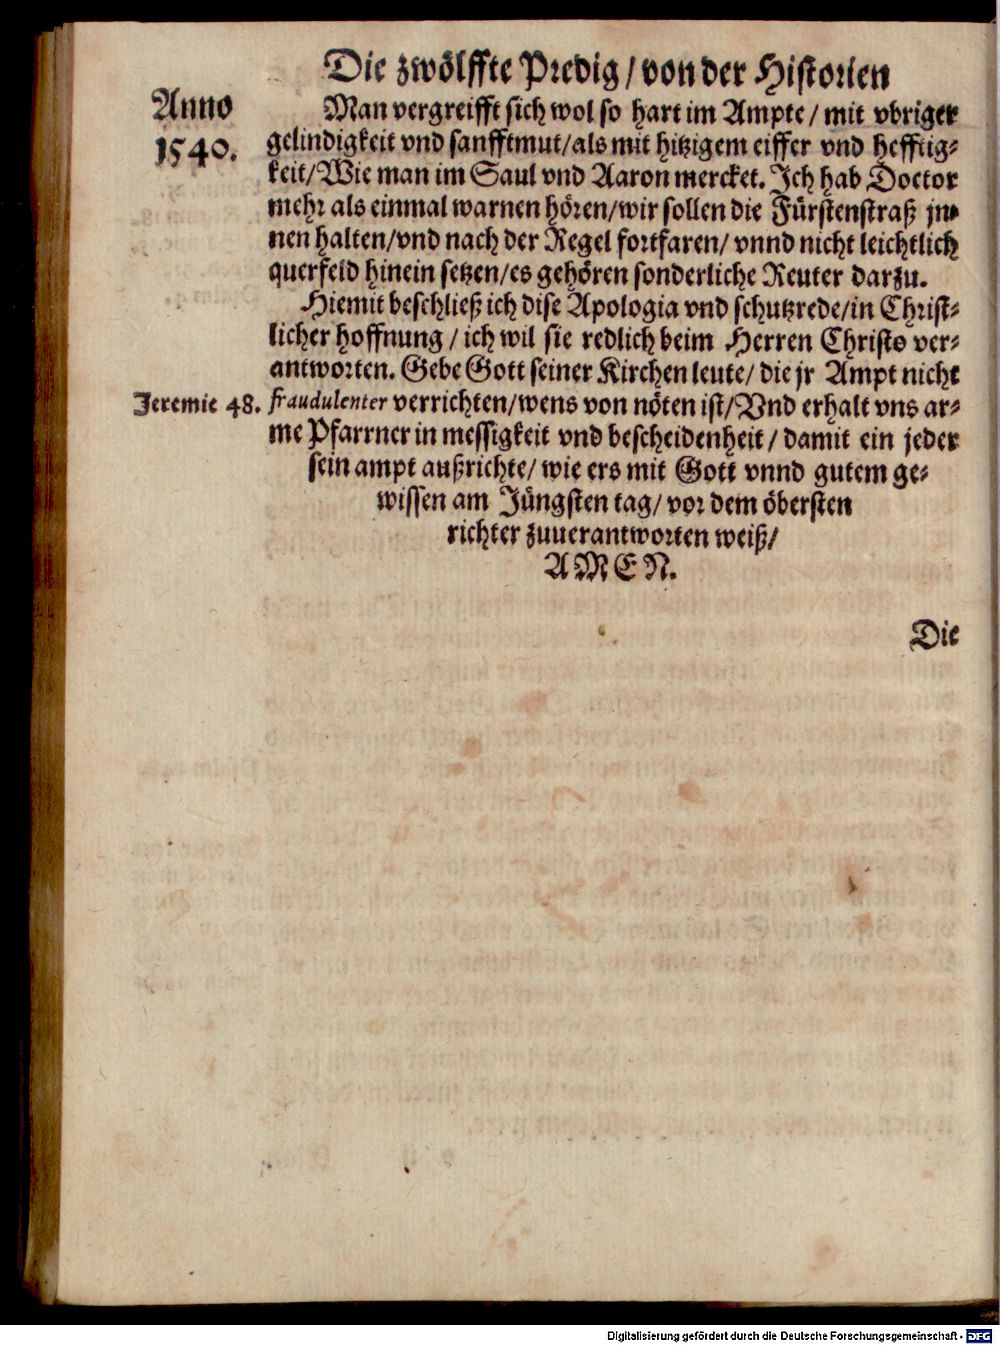 Die zwölffte Predig / von der Historien
Anno
1540.
Man vergreifft sich wol so hart im Ampte / mit vbriger
gelindigkeit vnd sanfftmut/als mit hitzigem eiffer vnd hefftig-
keit/Wie man im Saul vnd Aaron mercket. Ich hab Doctor
mehr als einmal warnen hören/wir sollen die Fürstenstraß jn-
nen halten/vnd nach der Regel fortfaren/ vnnd nicht leichtlich
querfeld hinein setzen/es gehören sonderliche Reuter darzu.
Hiemit beschließ ich dise Apologia vnd schutzrede/in Christ-
licher hoffnung / ich wil sie redlich beim Herren Christo ver-
antworten. Gebe Gott seiner Kirchen leute/ die jr Ampt nicht
Jeremie 48. fraudulenter verrichten/wens von nöten ist/Vnd erhalt vns ar-
me Pfarrner in messigkeit vnd bescheidenheit / damit ein jeder
sein ampt außrichte/ wie ers mit Gott vnnd gutem ge-
wissen am Jüngsten tag/ vor dem öbersten
richter zuuerantworten weiß/
AMEN.
Die
Digitalisierung gefördert durch die Deutsche Forschungsgemeinschaft - DFG